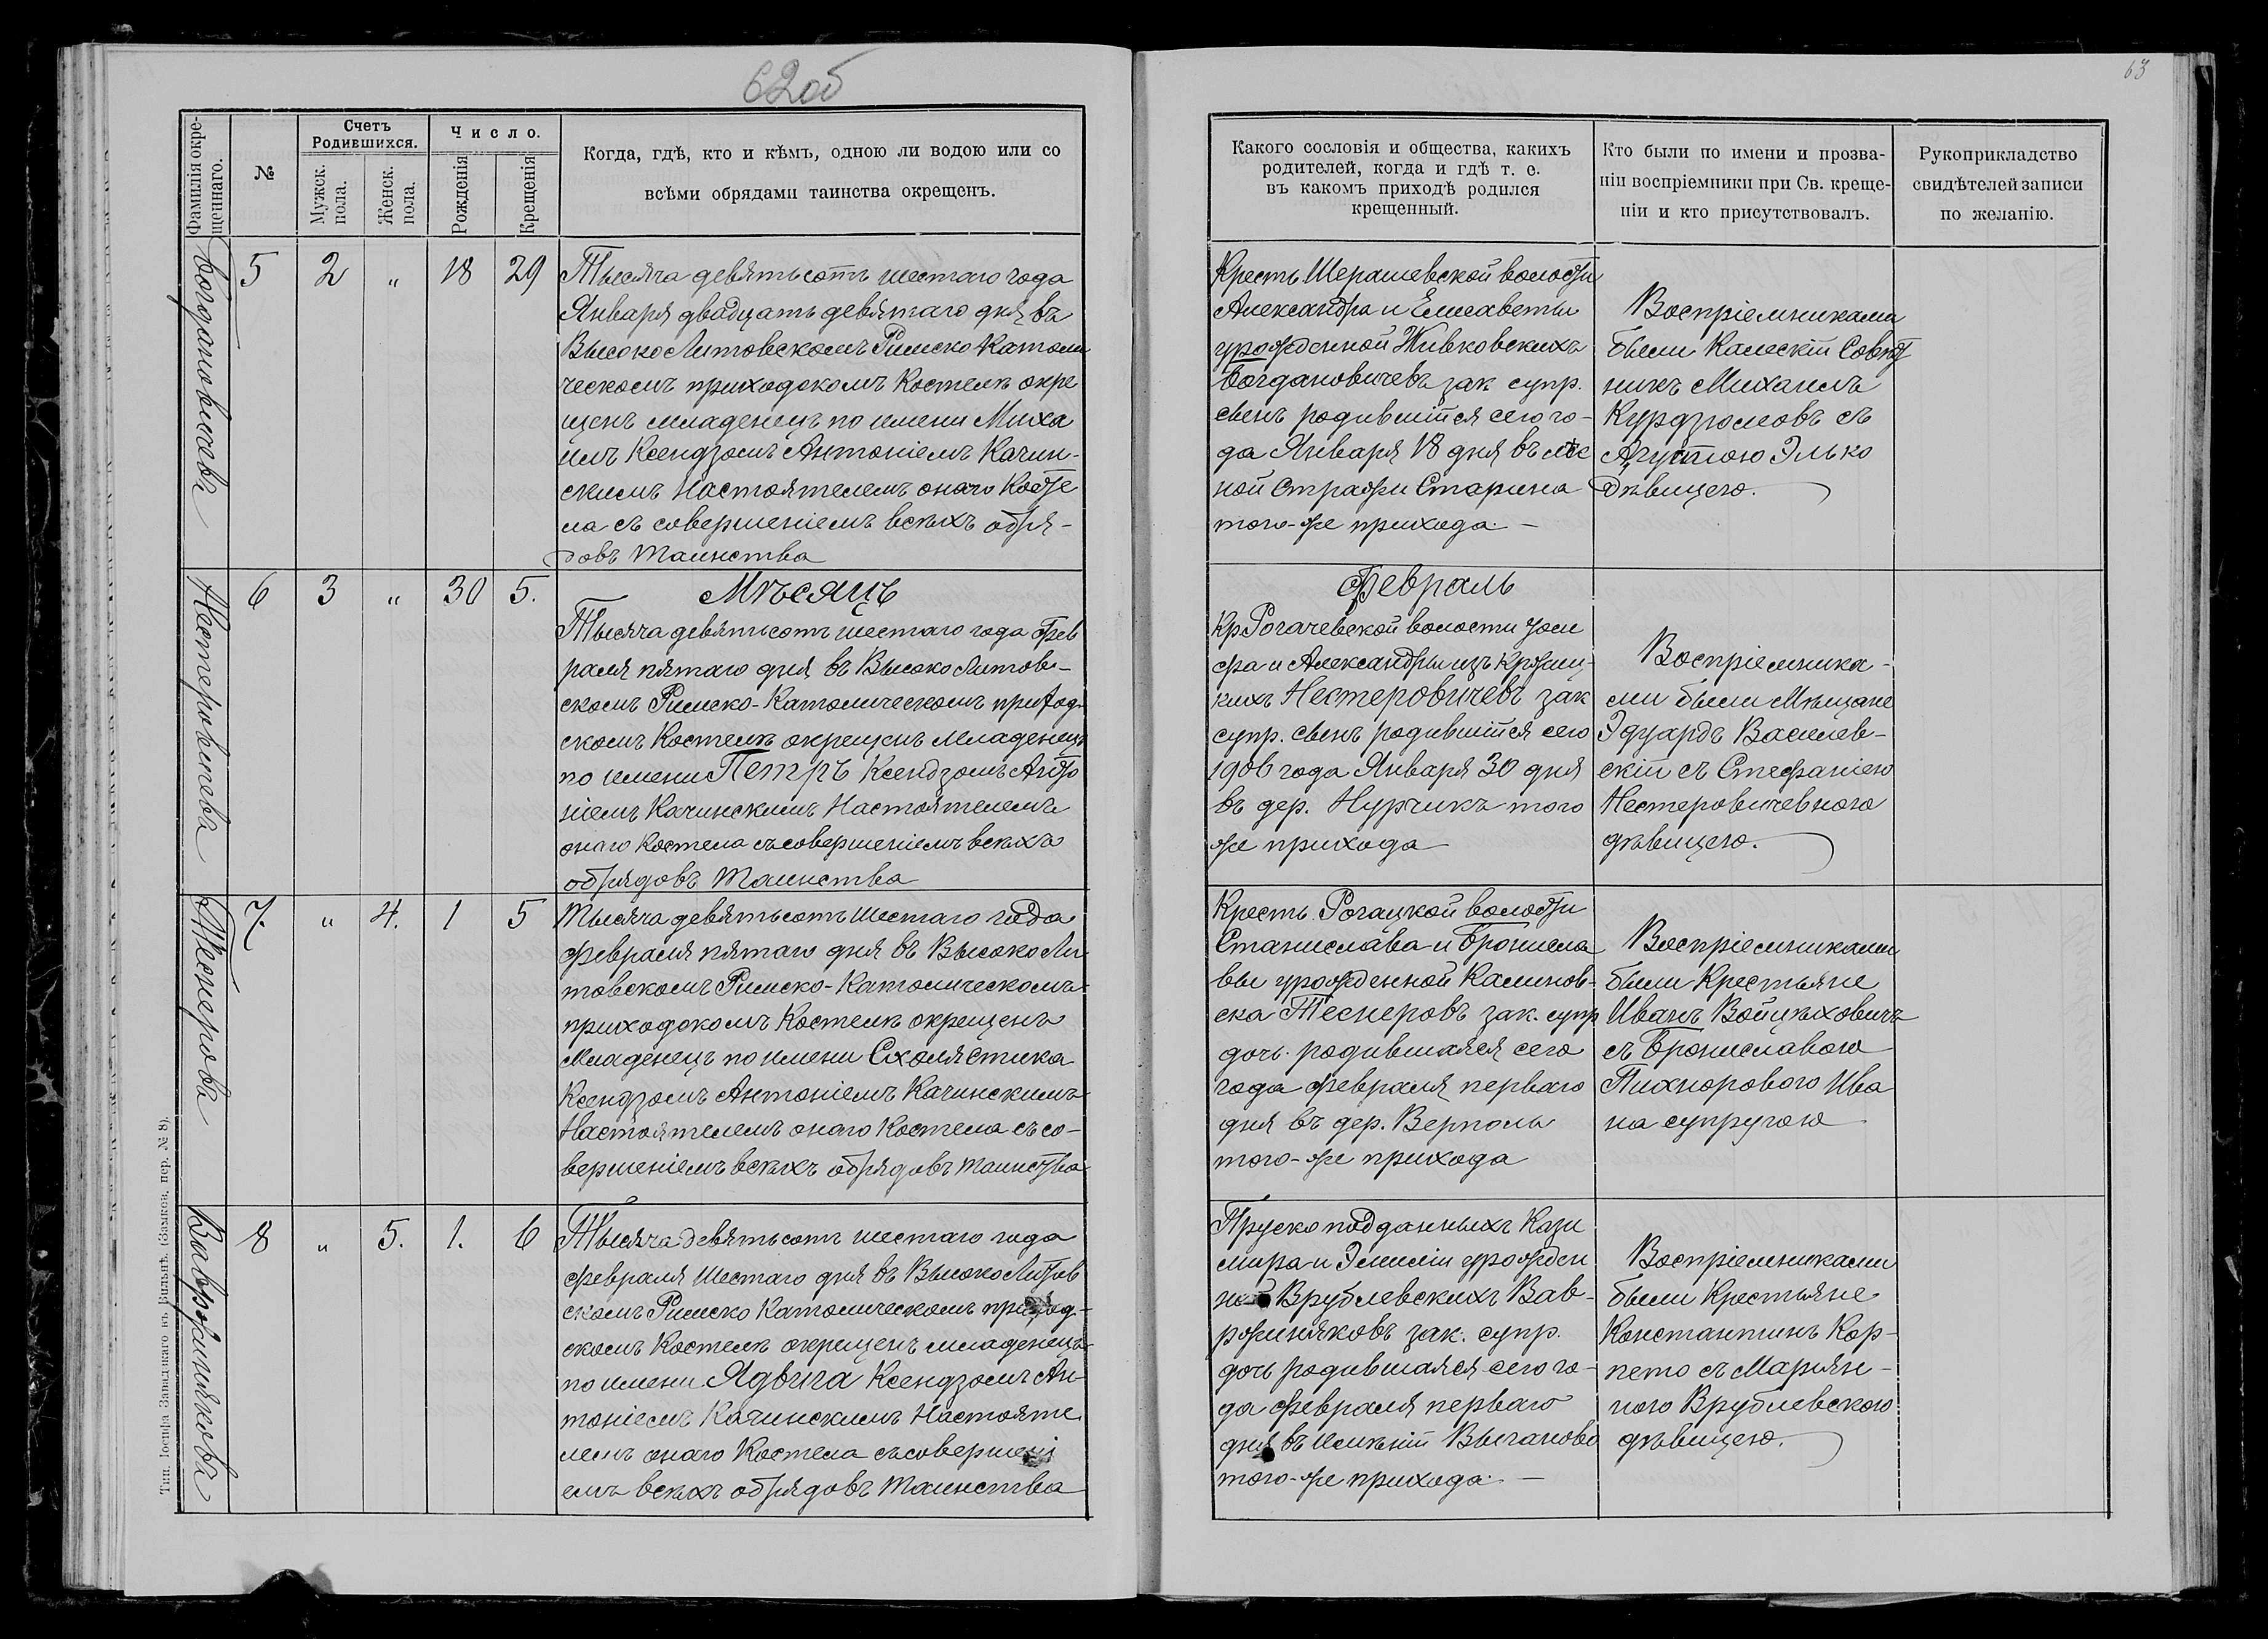 62об
63
Фамилія окре-
щеннаго.
№
Счетъ
Родившихся.
Мужск.
пола.
Женск.
пола.
Число.
Рожденія
Крещенія
Когда, гдѣ, кто и кѣмъ, одною ли водою или со
всѣми обрядами таинства окрещенъ.
Какого сословія и общества, какихъ
родителей, когда и гдѣ т. е.
въ какомъ приходѣ родился
крещенный.
Кто были по имени и прозва-
ніи воспріемники при Св. креще-
ніи и кто присутствовалъ.
Рукоприкладство
свидѣтелей записи
по желанію.
Богдановичъ
5 2 " 18 29
Тысяча девятьсотъ шестаго года
Января двадцать девятаго дня въ
Высоко Литовскомъ Римско Католи
ческомъ приходскомъ Костелѣ окре
щенъ младенецъ по имени Миха
илъ Ксендзомъ Антоніемъ Качин-
скимъ Настоятелемъ онаго Косте
ла съ совершеніемъ всѣхъ обря-
довъ Таинства
Кресть. Шерашевской волости
Александра и Елисаветы
урожденной Живковскихъ
Богдановичевъ зак супр.
сынъ родившійся сего го-
да Января 18 дня въ лѣс
ной стражи Старина
того-же прихода. —
Воспріемниками
были Калескій Совѣт
никъ Михаилъ
Курдзюмовъ съ
Агустою Элько
дѣвицею.
Нестеровичева
6 3 " 30 5.
Мѣсяцъ
Февраль
Тысяча девятьсотъ шестаго года Фев
раля пятаго дня въ Высоко Литов-
скомъ Римско-Католическомъ приход-
скомъ Костелѣ окрещенъ младенецъ
по имени Петръ Ксендзомъ Анто
ніемъ Качинскимъ Настоятелемъ
онаго Костела съ совершеніемъ всѣхъ
обрядовъ Таинства
Кр Рогачевской волости Іоси
фа и Александры изъ Крожиц-
кихъ Нестеровичевъ зак
супр. сынъ родившійся сего
1906 года Января 30 дня
въ дер. Нурчикъ того
же прихода
Воспріемника-
ми были Мѣщане
Эдуардъ Василев-
скій съ Стефаніею
Нестеровичевною
дѣвицею.
Теснерова
7. " 4. 1 5
Тысяча девятьсотъ шестаго года
Февраля пятаго дня въ Высоко Ли
товскомъ Римско-Католическомъ
приходскомъ Костелѣ окрещенъ
Младенецъ по имени Схолястика
Ксендзомъ Антоніемъ Качинскимъ
Настоятелемъ онаго Костела съ со-
вершеніемъ всѣхъ обрядовъ таинства
Кресть. Рогацкой волости
Станислава и Брониела
вы урожденной Калинов-
ска Теснеровъ зак. супр
дочь родившаяся сего
года Февраля перваго
дня въ дер. Верполь
того-же прихода
Воспріемниками
были Крестьяне
Иванъ Войцѣховичъ
съ Брониславою
Пихноровою Ива
на супругою
Вавржиняковъ
8 " 5. 1. 6
Тысяча девятьсотъ шестаго года
Февраля Шестаго дня въ Высоко Литов
скомъ Римско Католическомъ приход-
скомъ Костелѣ окрещенъ младенецъ
по имени Ядвига Ксендзомъ Ан-
тоніемъ Качинскимъ Настояте
лемъ онаго Костела съ совершені
емъ всѣхъ обрядовъ Таинства
Пруско подданныхъ Кази
мира и Эмиліи урожден
ной Врублевскихъ Вав-
ржиняковъ зак. супр.
дочь родившаяся сего го-
да Февраля перваго
дня въ имѣніи Выганово
того-же прихода. —
Воспріемниками
были Крестьяне
Константинъ Кор-
пето съ Маріян-
ною Врублевскою
дѣвицею.
Тип. Іосифа Завадзкаго въ Вильнѣ. (Замков. пер. № 8).